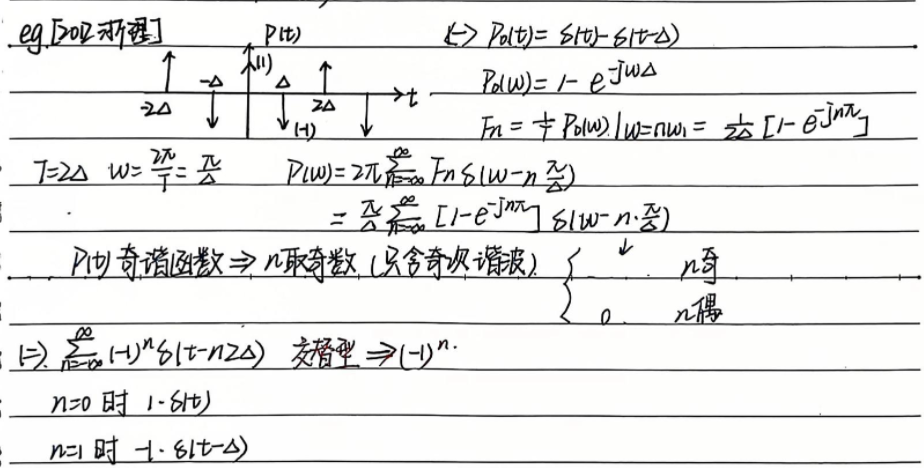 eg.[2012浙理]
P(t)
(1)
-2Δ
-Δ
Δ
2Δ
t
(-1)
<一> P₀(t)= δ(t)-δ(t-Δ)
P₀(ω)= 1- e^{-jωΔ}
Fn = 1/T P₀(ω)·|ω=nω₁ = 1/2Δ [1- e^{-jnπ}]
T=2Δ ω= 2π/T = π/Δ P(ω)= 2π ∑_{n=-∞}^{∞} Fn δ(ω-n π/Δ)
= π/Δ ∑_{n=-∞}^{∞} [1-e^{-jnπ}] δ(ω-n·π/Δ)
P(t) 奇谐函数 ⇒ n取奇数 (只含奇次谐波) { ↓ n奇
0. n偶
(二). ∑_{n=-∞}^{∞} (-1)ⁿ δ(t-n2Δ) 交替型 ⇒ (-1)ⁿ.
n=0 时 1·δ(t)
n=1 时 -1·δ(t-Δ)